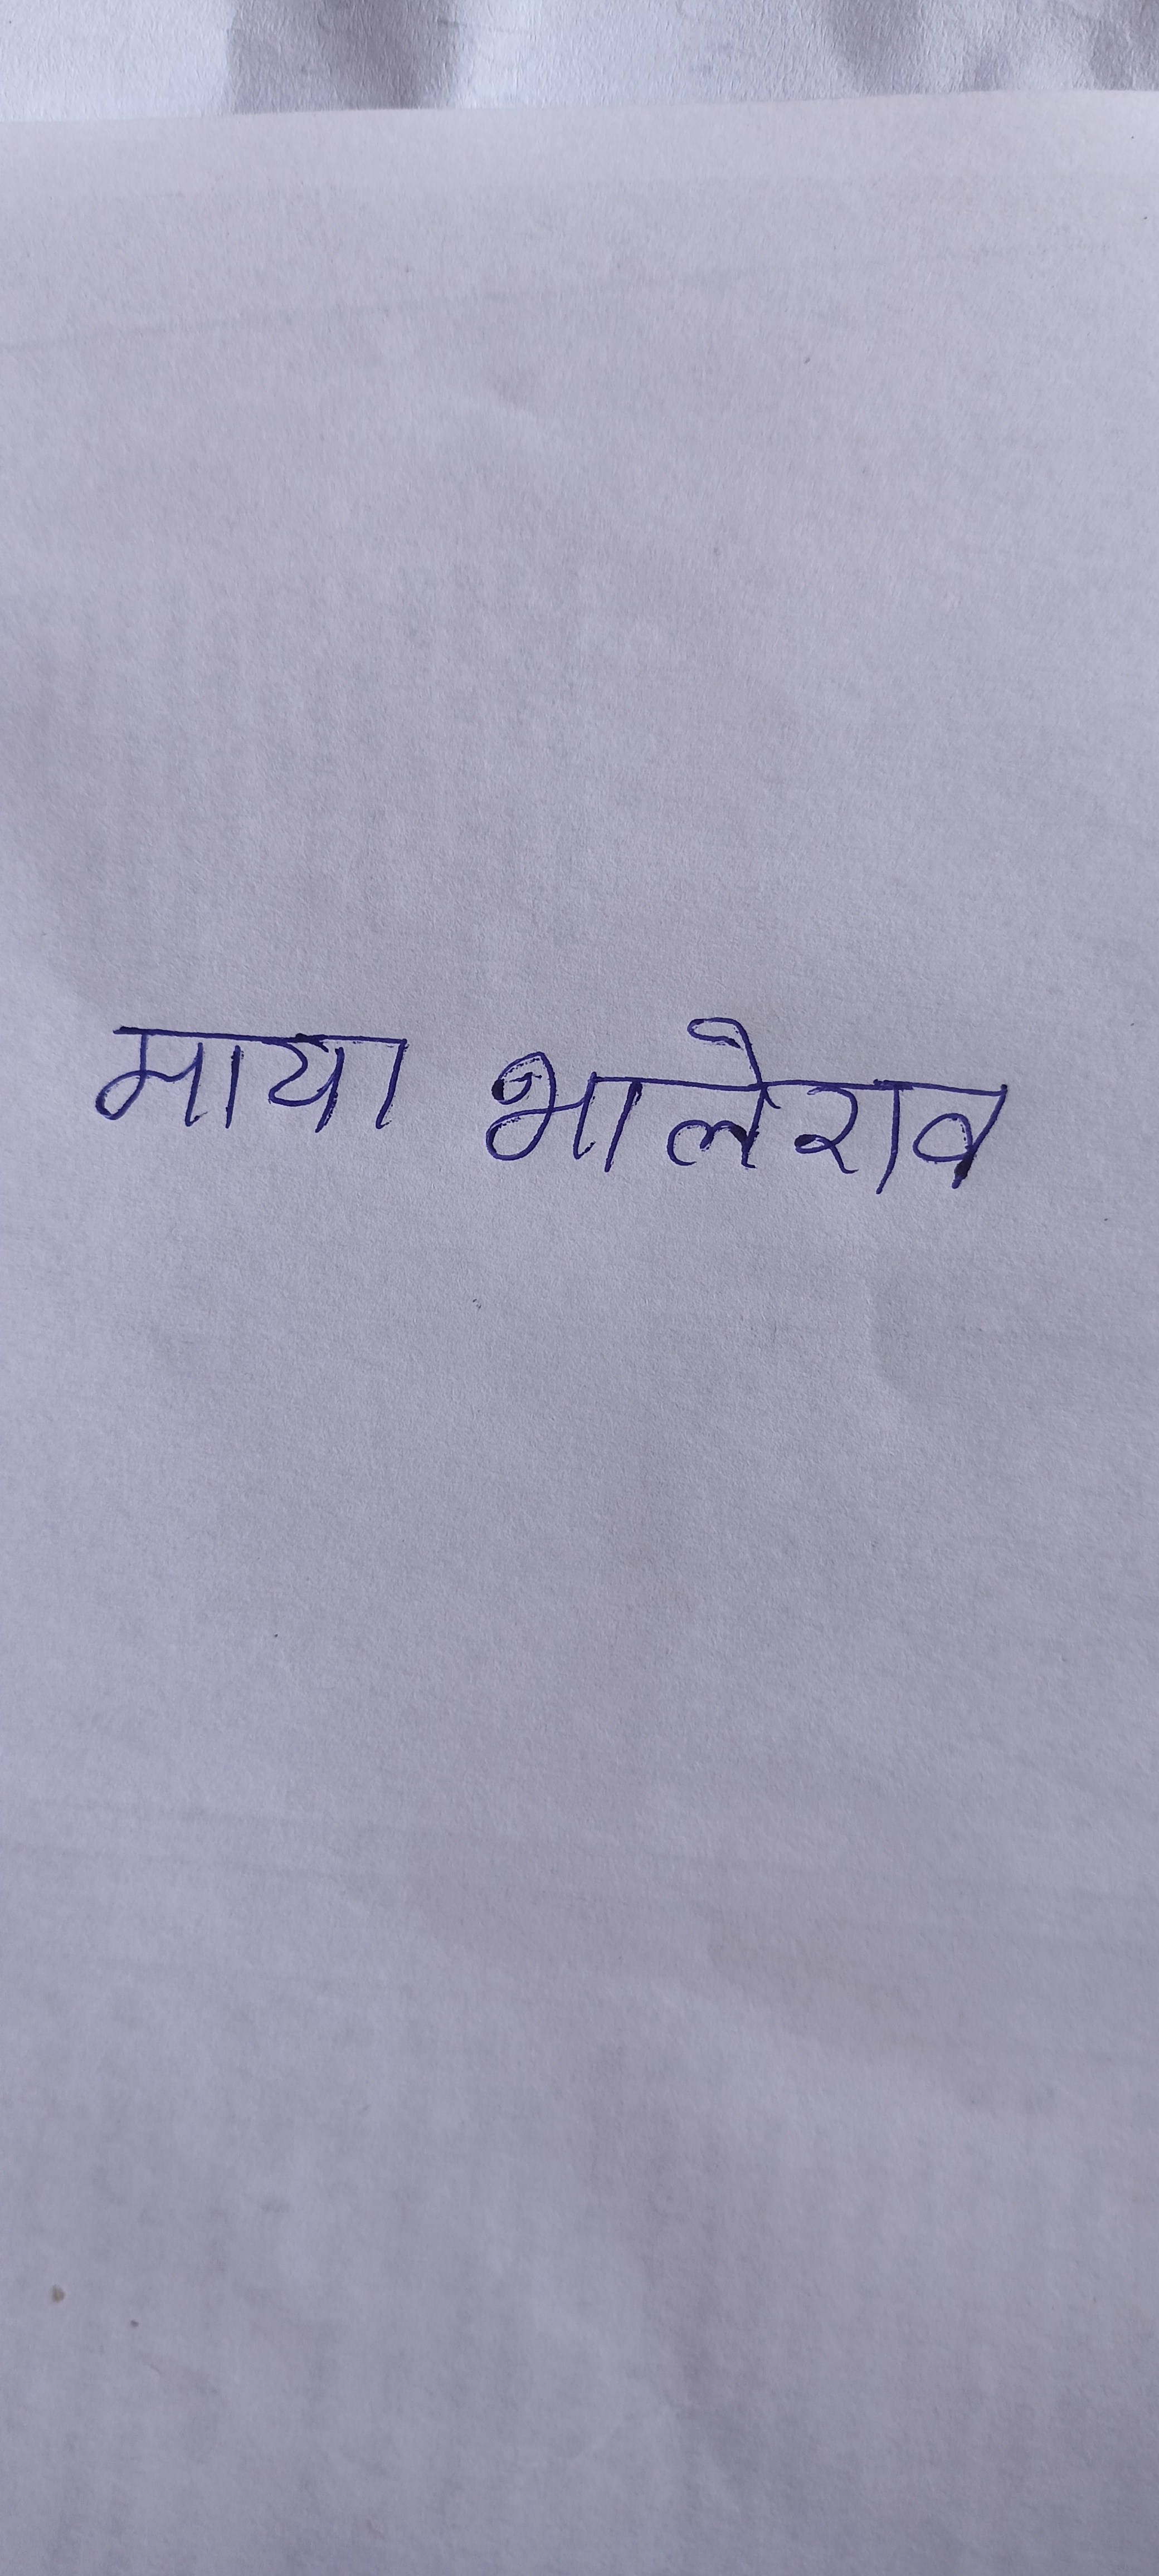 माया भालेराव